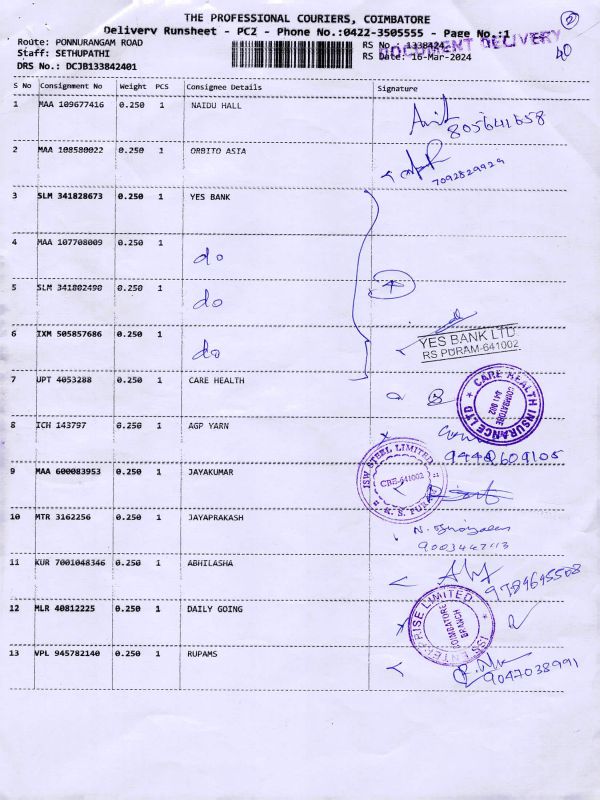 THE PROFESSIONAL COURIERS, COIMBATORE
Delivery Runsheet - PC2 - Phone No.:0422-3505555 - Page No.:1
2
Route: PONNURANGAM ROAD
RS No.: 1338424
DOCUMENT DELIVERY
Staff: SETHUPATHI
RS Date: 16-Mar-2024
40
DRS No.: DCJB133842401
S No Consignment No Weight PCS Consignee Details Signature
1 MAA 109677416 0.250 1 NAIDU HALL
805641658
2 MAA 108580022 0.250 1 ORBITO ASIA
7092829929
3 SLM 341828673 0.250 1 YES BANK
4 MAA 107708009 0.250 1 do
5 SLM 341802490 0.250 1 do
4
6 IXM 505857686 0.250 1 do
YES BANK LTD
RS PURAM-641002
7 UPT 4053288 0.250 1 CARE HEALTH
CARE HEALTH INSURANCE LTD
COIMBATORE
641 002
8 ICH 143797 0.250 1 AGP YARN
9444609105
9 MAA 600083953 0.250 1 JAYAKUMAR
ISW STEEL LIMITED
CBE-641002
R. S. PURAM
10 MTR 3162256 0.250 1 JAYAPRAKASH
11 KUR 7001048346 0.250 1 ABHILASHA
12 MLR 40812225 0.250 1 DAILY GOING
ISS ENTERPRISE LIMITED
COIMBATORE
BRANCH
13 VPL 945782140 0.250 1 RUPAMS
9047038991